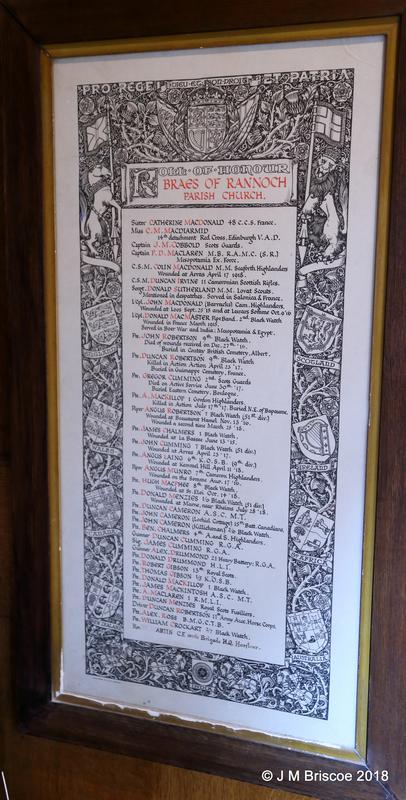 PRO REGE ET PATRIA
DIEU ET MON DROIT
ROLL OF HONOUR
BRAES OF RANNOCH
PARISH CHURCH.
Sister CATHERINE MACDONALD 48 C.C.S. France.
Miss C. M. MACDIARMID
14th detachment Red Cross, Edinburgh V.A.D.
Captain J. M. COBBOLD Scots Guards.
Captain P. D. MACLAREN M.B. R.A.M.C. (S.R.)
Mesopotamia Ex. Force.
C.S.M. COLIN MACDONALD M.M. Seaforth Highlanders
Wounded at Arras April 17 1918.
C.S.M. DUNCAN IRVINE 11 Cameronian Scottish Rifles.
Sergt. DONALD SUTHERLAND M.M. Lovat Scouts.
Mentioned in despatches. Served in Salonica & France.
L/Cpl. JOHN MACDONALD (Barracks) Cam. Highlanders.
Wounded at Loos Sept. 25 '15 and at Somme Oct.
L/Cpl. DONALD MACMASTER Pipe Band 2nd Black Watch.
Wounded in France March 1918.
Served in Boer War and India: Mesopotamia & Egypt.
Pte. JOHN ROBERTSON 9th Black Watch.
Died of wounds received on Dec. 27th '16.
Buried in Contay British Cemetery, Albert.
Pte. DUNCAN ROBERTSON 9th Black Watch
Killed in Action Arras April 23 '17.
Buried in Guimappe Cemetery, France.
Pte. GREGOR CUMMING 2nd Scots Guards
Died on Active Service June 30th '17.
Buried Eastern Cemetery, Boulogne.
Pte. A. MACKILLOP 1 Gordon Highlanders.
Killed in Action July 17th '17. Buried N.E. of Bapaume.
Piper ANGUS ROBERTSON 7 Black Watch (51st div.)
Wounded at Beaumont Hamel Nov. 13 '16.
Wounded a second time March 25 '18.
Pte. JAMES CHALMERS 1 Black Watch.
Wounded at La Bassee June 13 '15.
Pte. JOHN CUMMING 7 Black Watch (51 div.)
Wounded at Arras April 23 '17.
Pte. ANGUS LAING 6th K.O.S.B. (9th div.)
Wounded at Kemmel Hill April 11 '18.
Piper ANGUS MUNRO 7th Cameron Highlanders.
Wounded on the Somme Aug. 17 '16.
Pte. HUGH MACPHEE 8th Black Watch.
Wounded at St. Eloi Oct. 14 '18.
Pte. DONALD MENZIES 1/6 Black Watch (51 div.)
Wounded at Marne, near Rheims July 28 '18.
Pte. DUNCAN CAMERON A.S.C. M.T.
Pte. JOHN CAMERON (Lochiel Cottage) 15th Batt. Canadians.
Pte. JOHN CAMERON (Killichonan) 2/6 Black Watch.
Pte. BEN. CHALMERS 8th A. and S. Highlanders.
Gunner DUNCAN CUMMING R.G.A.
Sig. JAMES CUMMING R.G.A.
Gunner ALEX. DRUMMOND 23 Heavy Battery: R.G.A.
Pte. DONALD DRUMMOND H.L.I.
Pte. ROBERT GIBSON 13th Royal Scots.
Pte. THOMAS GIBSON 1/5 K.O.S.B.
Pte. DONALD MACKILLOP 1 Black Watch.
Pte. JAMES MACKINTOSH A.S.C. M.T.
Pte. A. MACLAREN 1 R.M.L.I.
Pte. DUNCAN MENZIES Royal Scots Fusiliers.
Driver DUNCAN ROBERTSON 11th Army Aux. Horse Corps.
Pte. ALEX. ROSS B.M.G.C.T.B.
Pte. WILLIAM CROCKART 2/7 Black Watch.
AUSTRALIA
© J M Briscoe 2018